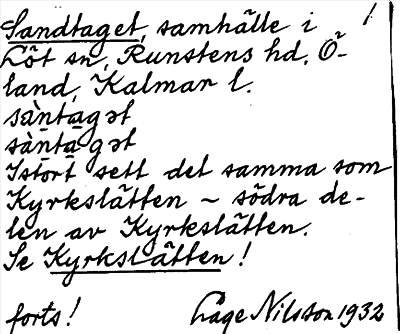 Sandtaget, samhälle i 1
Löt sn, Runstens hd, Ö-
land, Kalmar l.
sàntagət
sàntagət
Istort sett det samma som
Kyrkslätten ~ södra de-
len av Kyrkslätten.
Se Kyrkslätten!
forts! Låge Nilsson 1932